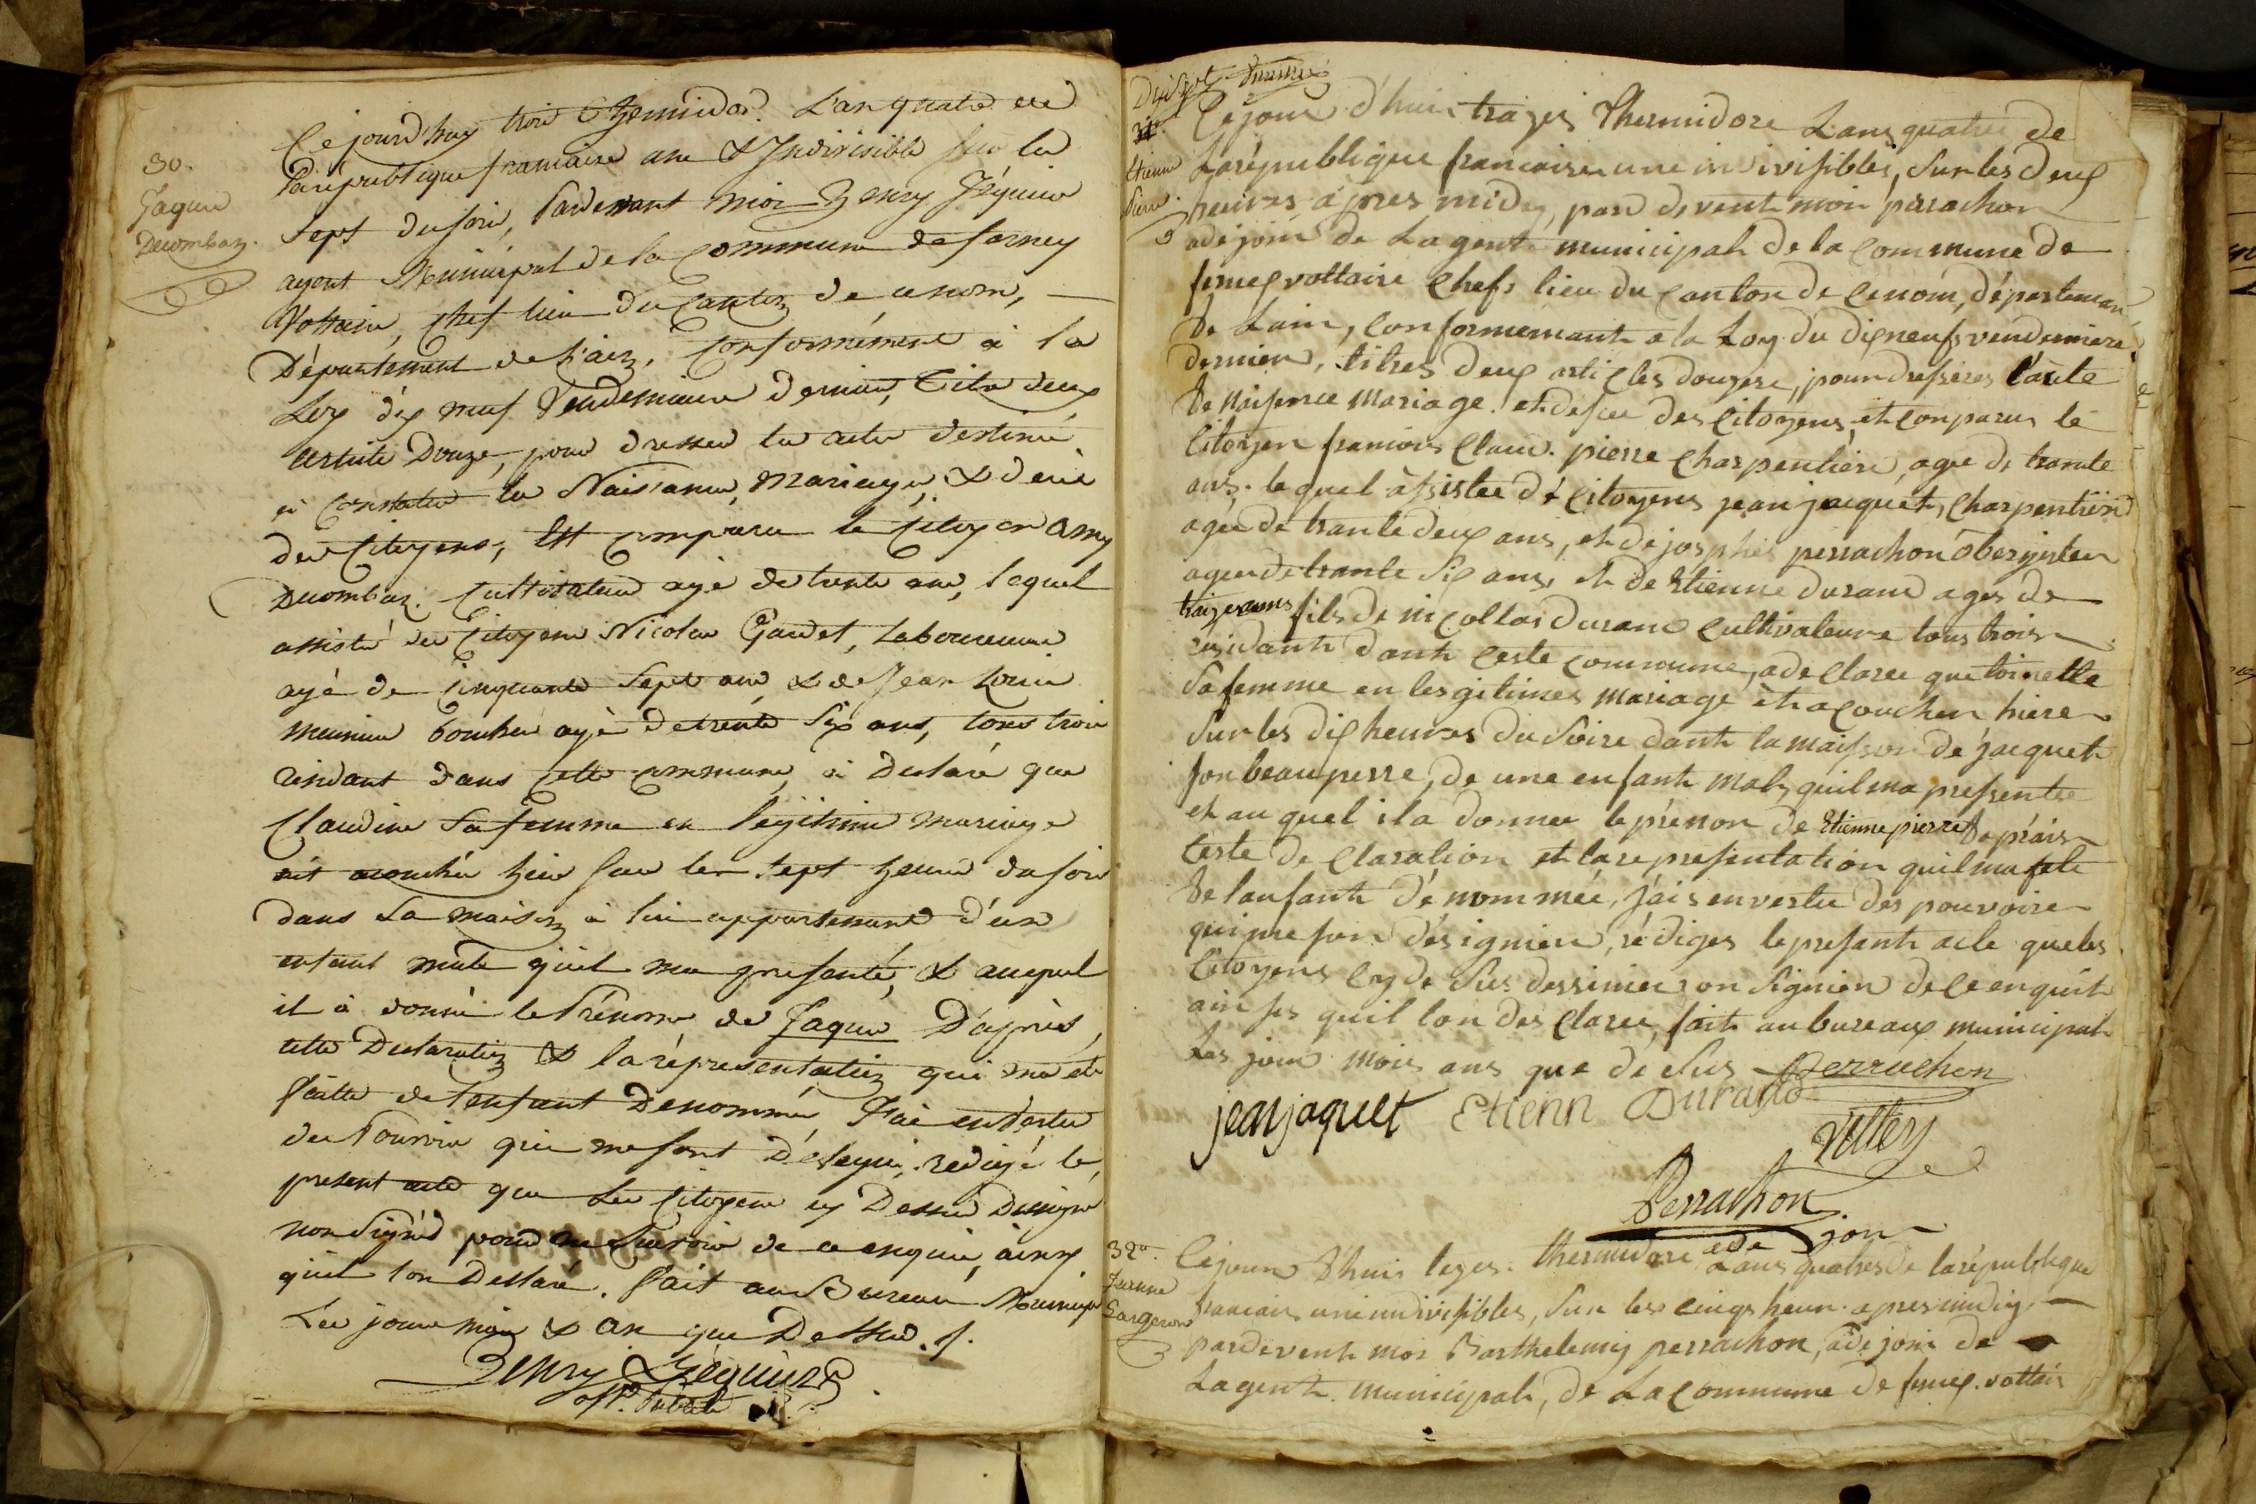 30.
Jaque
Decombaz.
Ce jourdhuy trois Thermidor. L'an quatre de
la république francaise une & Indivisible sur les
sept du soir, Pardevant moi Henry Zéguine
agent Municipal de la Commune de ferney
Voltaire, chef lieu du Canton de ce nom,
Département de L'ain, conformément à la
Loy dix neuf Vendemiaire dernier, Titre deux
article Douze, pour dresser les actes destinés
à constater les Naissances, mariages, & décès
des Citoyens, Est comparu le Citoyen Amy
Decombaz. Cultivateur agé de trente ans, lequel
assisté des Citoyens Nicolas Gaudet, Laboureur
agé de cinquante sept ans & de Jean Louis
meunier boucher agé de trente six ans, tous trois
résidant dans cette commune, à déclaré que
Claudine sa femme en légitime mariage
est acouchée hier sur les sept heures du soir
dans sa maison à lui appartenant d'un
enfant mâle qu'il ma presenté, & auquel
il à donné le Prénom de Jaque D'après
cette Declaration & la représentation qui ma été
faitte de l'enfant Denommé, J'ai en vertu
des Pouvoirs qui me sont Délégué, redigé le
present acte que Les Citoyens cy Dessus Designé
non Signés pour ne Savoir de ce enquis, ainsy
qu'il l'on Déclaré. fait au Bureau Municip
Les jour mois & an que Dessus.
Henry Zéguine
off. Public
Etienne
Pierre
Ce jour d'huis traizes Thermidore Lans quatres de
La république francaise une indivisibles, sur les deux
heures apres midy, pard devent moi perrachon
adejoin de Lagent municipal de la commune de
ferney voltaire Chefs lieu du canton de ce nom, département
de Lain, conformemant a la Loy du disneufs vendemiere
dernier, titres deux articles douzere, pour dresseres l'acte
de naisence mariage et desce des Citoyens, et conparus le
Citoyen francois Claud. pierre charpentiere, agee de trante
ans. lequel assistee de citoyens jean jacquet, charpentiere
agee de trante deux ans, et de josphes perrachon obergisten
agee de trante six ans, et de Etienne durand ages de
traize ans fils de nicollas durand cultivateure tous trois
residante dant ceste commune, a declaree que toinette
sa femme en lesgitimes mariage et acouchee hiere
sur les dix heures du soire dant la maison de jacquet
son beau perre, de une enfant mal, quil ma presentee
et au quel il a donnee le prénon de Etienne pierre Dapréis
ceste declaration et la represintation quil ma fete
de lanfant dénommée, j'ais en vertu des pouvoire
qui me son désignier, rédiges le presant acte que les
Citoyens cy de sus dessinies on signien de ce enquit
ainsis quil lon des claree, fait au bureaux municipal
Les jour mois ans que desus Perrachon
jean jaquet Etienn Durand
Perrachon
adejoin
32e.
Ce jour d'huis seze. thermidore Lans quatres de la république
francais une indivisibles, sur les cinqs heur. apres midy
pardevent moi Barthelemy perrachon, adejoin de
Lagent municipal, de La commune de ferney. voltair